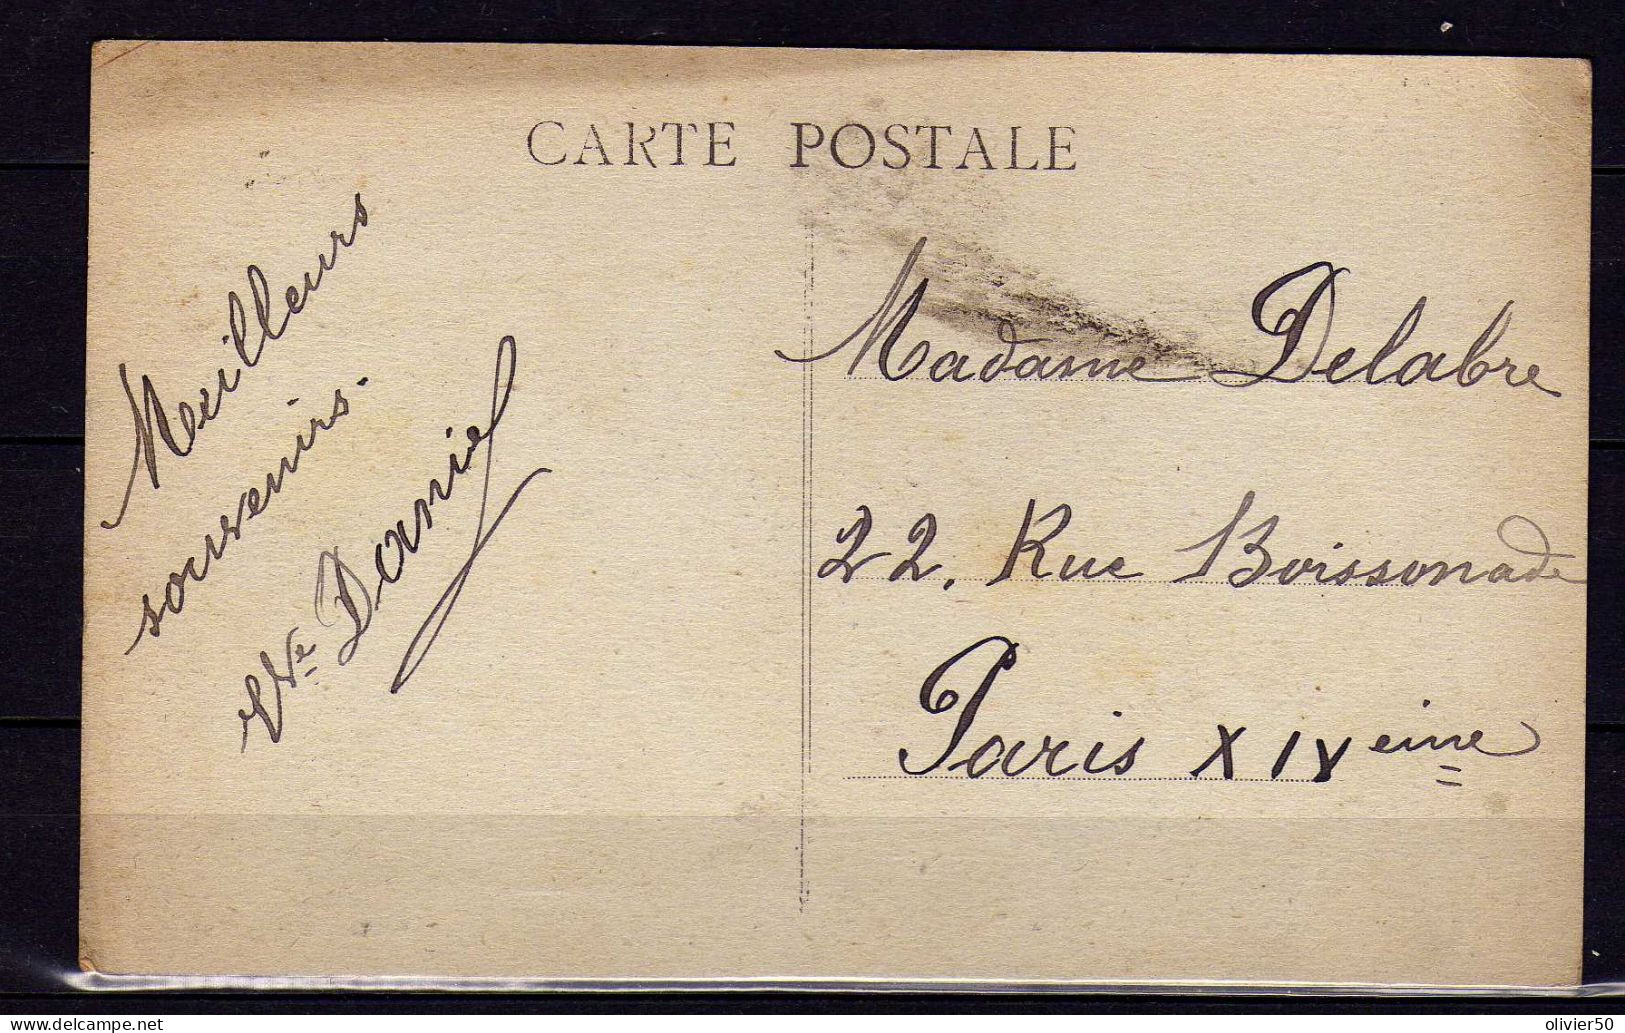 CARTE POSTALE
Meilleurs
souvenirs.
Vve Daniel
Madame Delabre
22, Rue Boissonade
Paris XIVeime
delcampe.net
olivier50